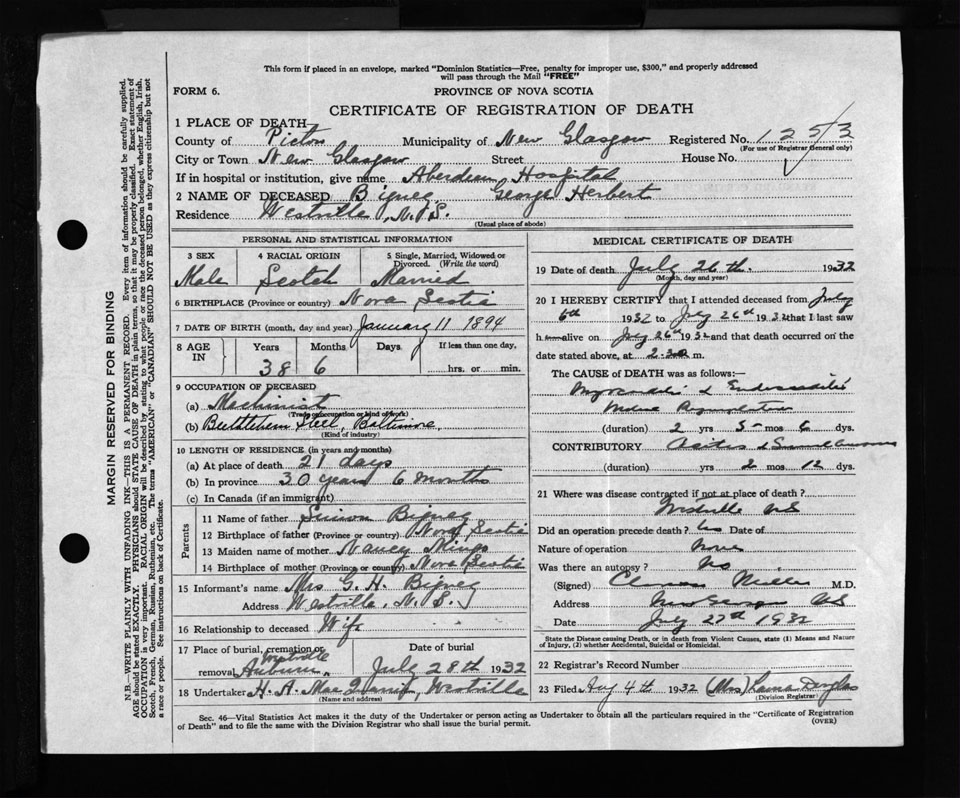 This form if placed in an envelope, marked "Dominion Statistics—Free, penalty for improper use, $300," and properly addressed
will pass through the Mail "FREE"
FORM 6.
PROVINCE OF NOVA SCOTIA
CERTIFICATE OF REGISTRATION OF DEATH
1 PLACE OF DEATH
County of Pictou Municipality of New Glasgow Registered No. 1253
(For use of Registrar General only)
City or Town New Glasgow Street House No.
If in hospital or institution, give name Aberdeen Hospital
2 NAME OF DECEASED Bigney George Herbert
Residence Westville, N.S.
(Usual place of abode)
PERSONAL AND STATISTICAL INFORMATION
3 SEX 4 RACIAL ORIGIN 5 Single, Married, Widowed or Divorced. (Write the word)
Male Scotch Married
6 BIRTHPLACE (Province or country) Nova Scotia
7 DATE OF BIRTH (month, day and year) January 11 1894
8 AGE IN Years Months Days If less than one day,
38 6 hrs. or min.
9 OCCUPATION OF DECEASED
(a) Machinist
(Trade occupation or kind of work)
(b) Bethlehem Steel, Baltimore.
(Kind of industry)
10 LENGTH OF RESIDENCE (in years and months)
(a) At place of death 21 days
(b) In province 30 years 6 months
(c) In Canada (if an immigrant)
Parents
11 Name of father Simon Bigney
12 Birthplace of father (Province or country) Nova Scotia
13 Maiden name of mother Nancy
14 Birthplace of mother (Province or country) Nova Scotia
15 Informant's name Mrs G. H. Bigney
Address Westville, N.S.
16 Relationship to deceased Wife
17 Place of burial, cremation or removal Auburn, Westville Date of burial July 28th 1932
18 Undertaker H. A. Westville
(Name and address)
MEDICAL CERTIFICATE OF DEATH
19 Date of death July 26th. 1932
(Month, day and year)
20 I HEREBY CERTIFY that I attended deceased from July
6th 1932 to July 26th 1932 that I last saw
h alive on July 26th 1932 and that death occurred on the
date stated above, at 2.30 m.
The CAUSE of DEATH was as follows:—
Myocarditis & Endocarditis
(duration) 2 yrs 5 mos 6 dys.
CONTRIBUTORY
(duration) yrs 2 mos 12 dys.
21 Where was disease contracted if not at place of death?
Westville NS
Did an operation precede death? No Date of
Nature of operation None
Was there an autopsy? No
(Signed) Miller M.D.
Address New Glasgow NS
Date July 27th 1932
State the Disease causing Death, or in death from Violent Causes, state (1) Means and Nature
of Injury, (2) whether Accidental, Suicidal or Homicidal.
22 Registrar's Record Number
23 Filed Aug 4th 1932 (Mrs) Douglas
(Division Registrar)
Sec. 46—Vital Statistics Act makes it the duty of the Undertaker or person acting as Undertaker to obtain all the particulars required in the "Certificate of Registration
of Death" and to file the same with the Division Registrar who shall issue the burial permit. (OVER)
MARGIN RESERVED FOR BINDING
N.B.—WRITE PLAINLY WITH UNFADING INK—THIS IS A PERMANENT RECORD. Every item of information should be carefully supplied.
AGE should be stated EXACTLY. PHYSICIANS should STATE CAUSE OF DEATH in plain terms, so that it may be properly classified. Exact statement of
OCCUPATION is very important. RACIAL ORIGIN will be described by stating to what people or race the deceased person belonged, whether English, Irish,
Scotch, French, German, Russian, Ruthenian, etc. The terms "AMERICAN" or "CANADIAN" SHOULD NOT BE USED as they express citizenship but not
a race or people. See instructions on back of Certificate.